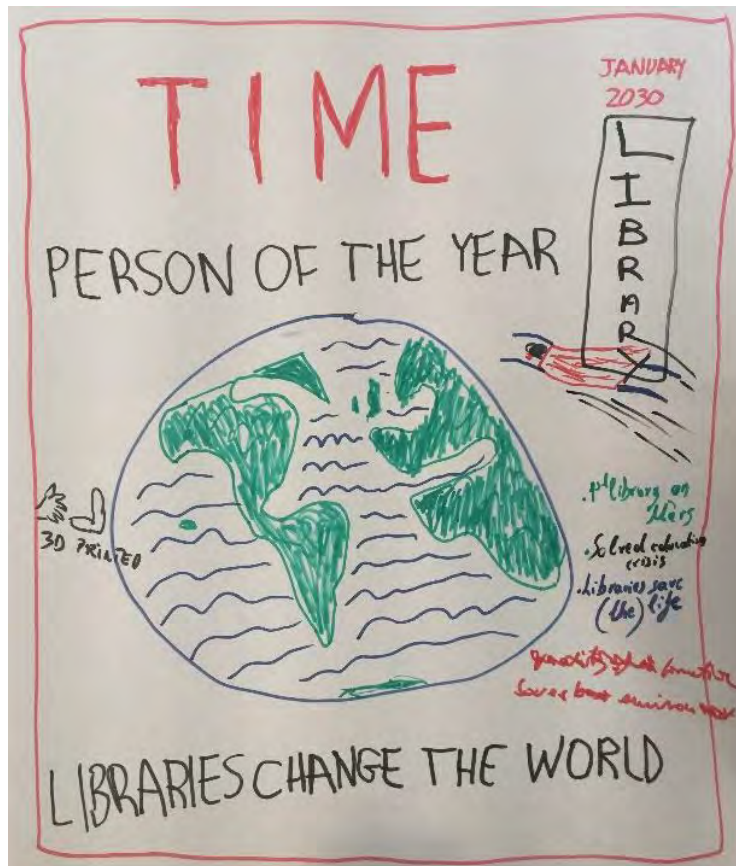 TIME
JANUARY
2030
LIBRARY
PERSON OF THE YEAR
3D PRINTED
.1st library on
Mars
.Solved education
crisis
.Libraries save
(the) life
LIBRARIES CHANGE THE WORLD